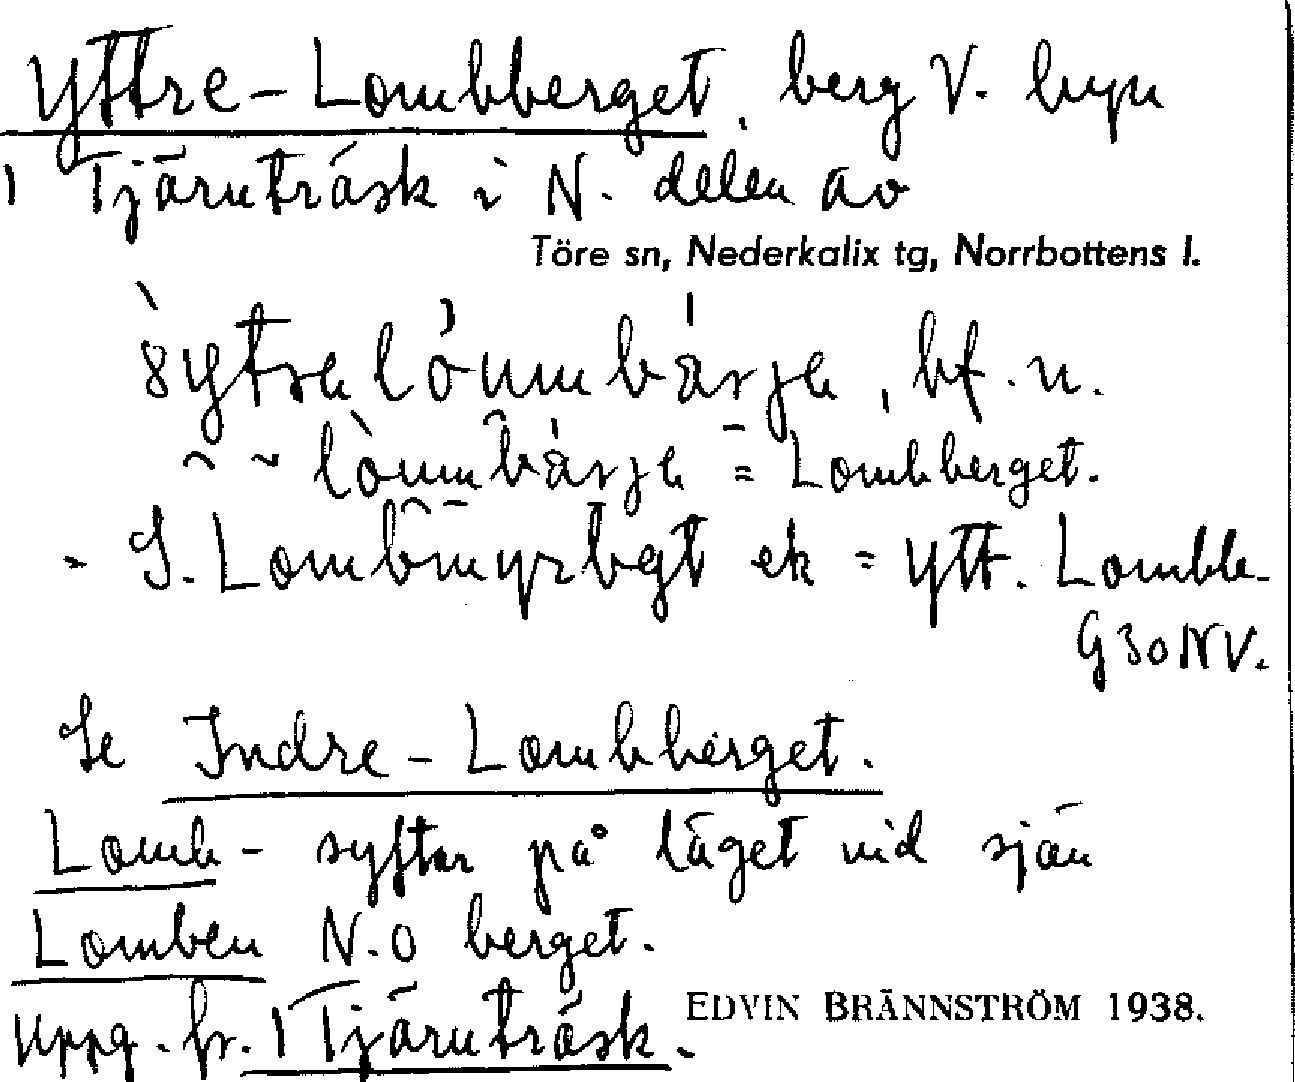 Yttre-Lombberget, berg V. byn
1 Tjärnträsk i N. delen av
Töre sn, Nederkalix tg, Norrbottens l.
bf. n.
= Lombberget.
- S. Lombmyrbgt ek = Ytt. Lombb-
G30NV.
Se Indre-Lombberget.
Lomb- syftar på läget vid sjön
Lomben N.O berget.
Uppg. fr. 1 Tjärnträsk.
EDVIN BRÄNNSTRÖM 1938.